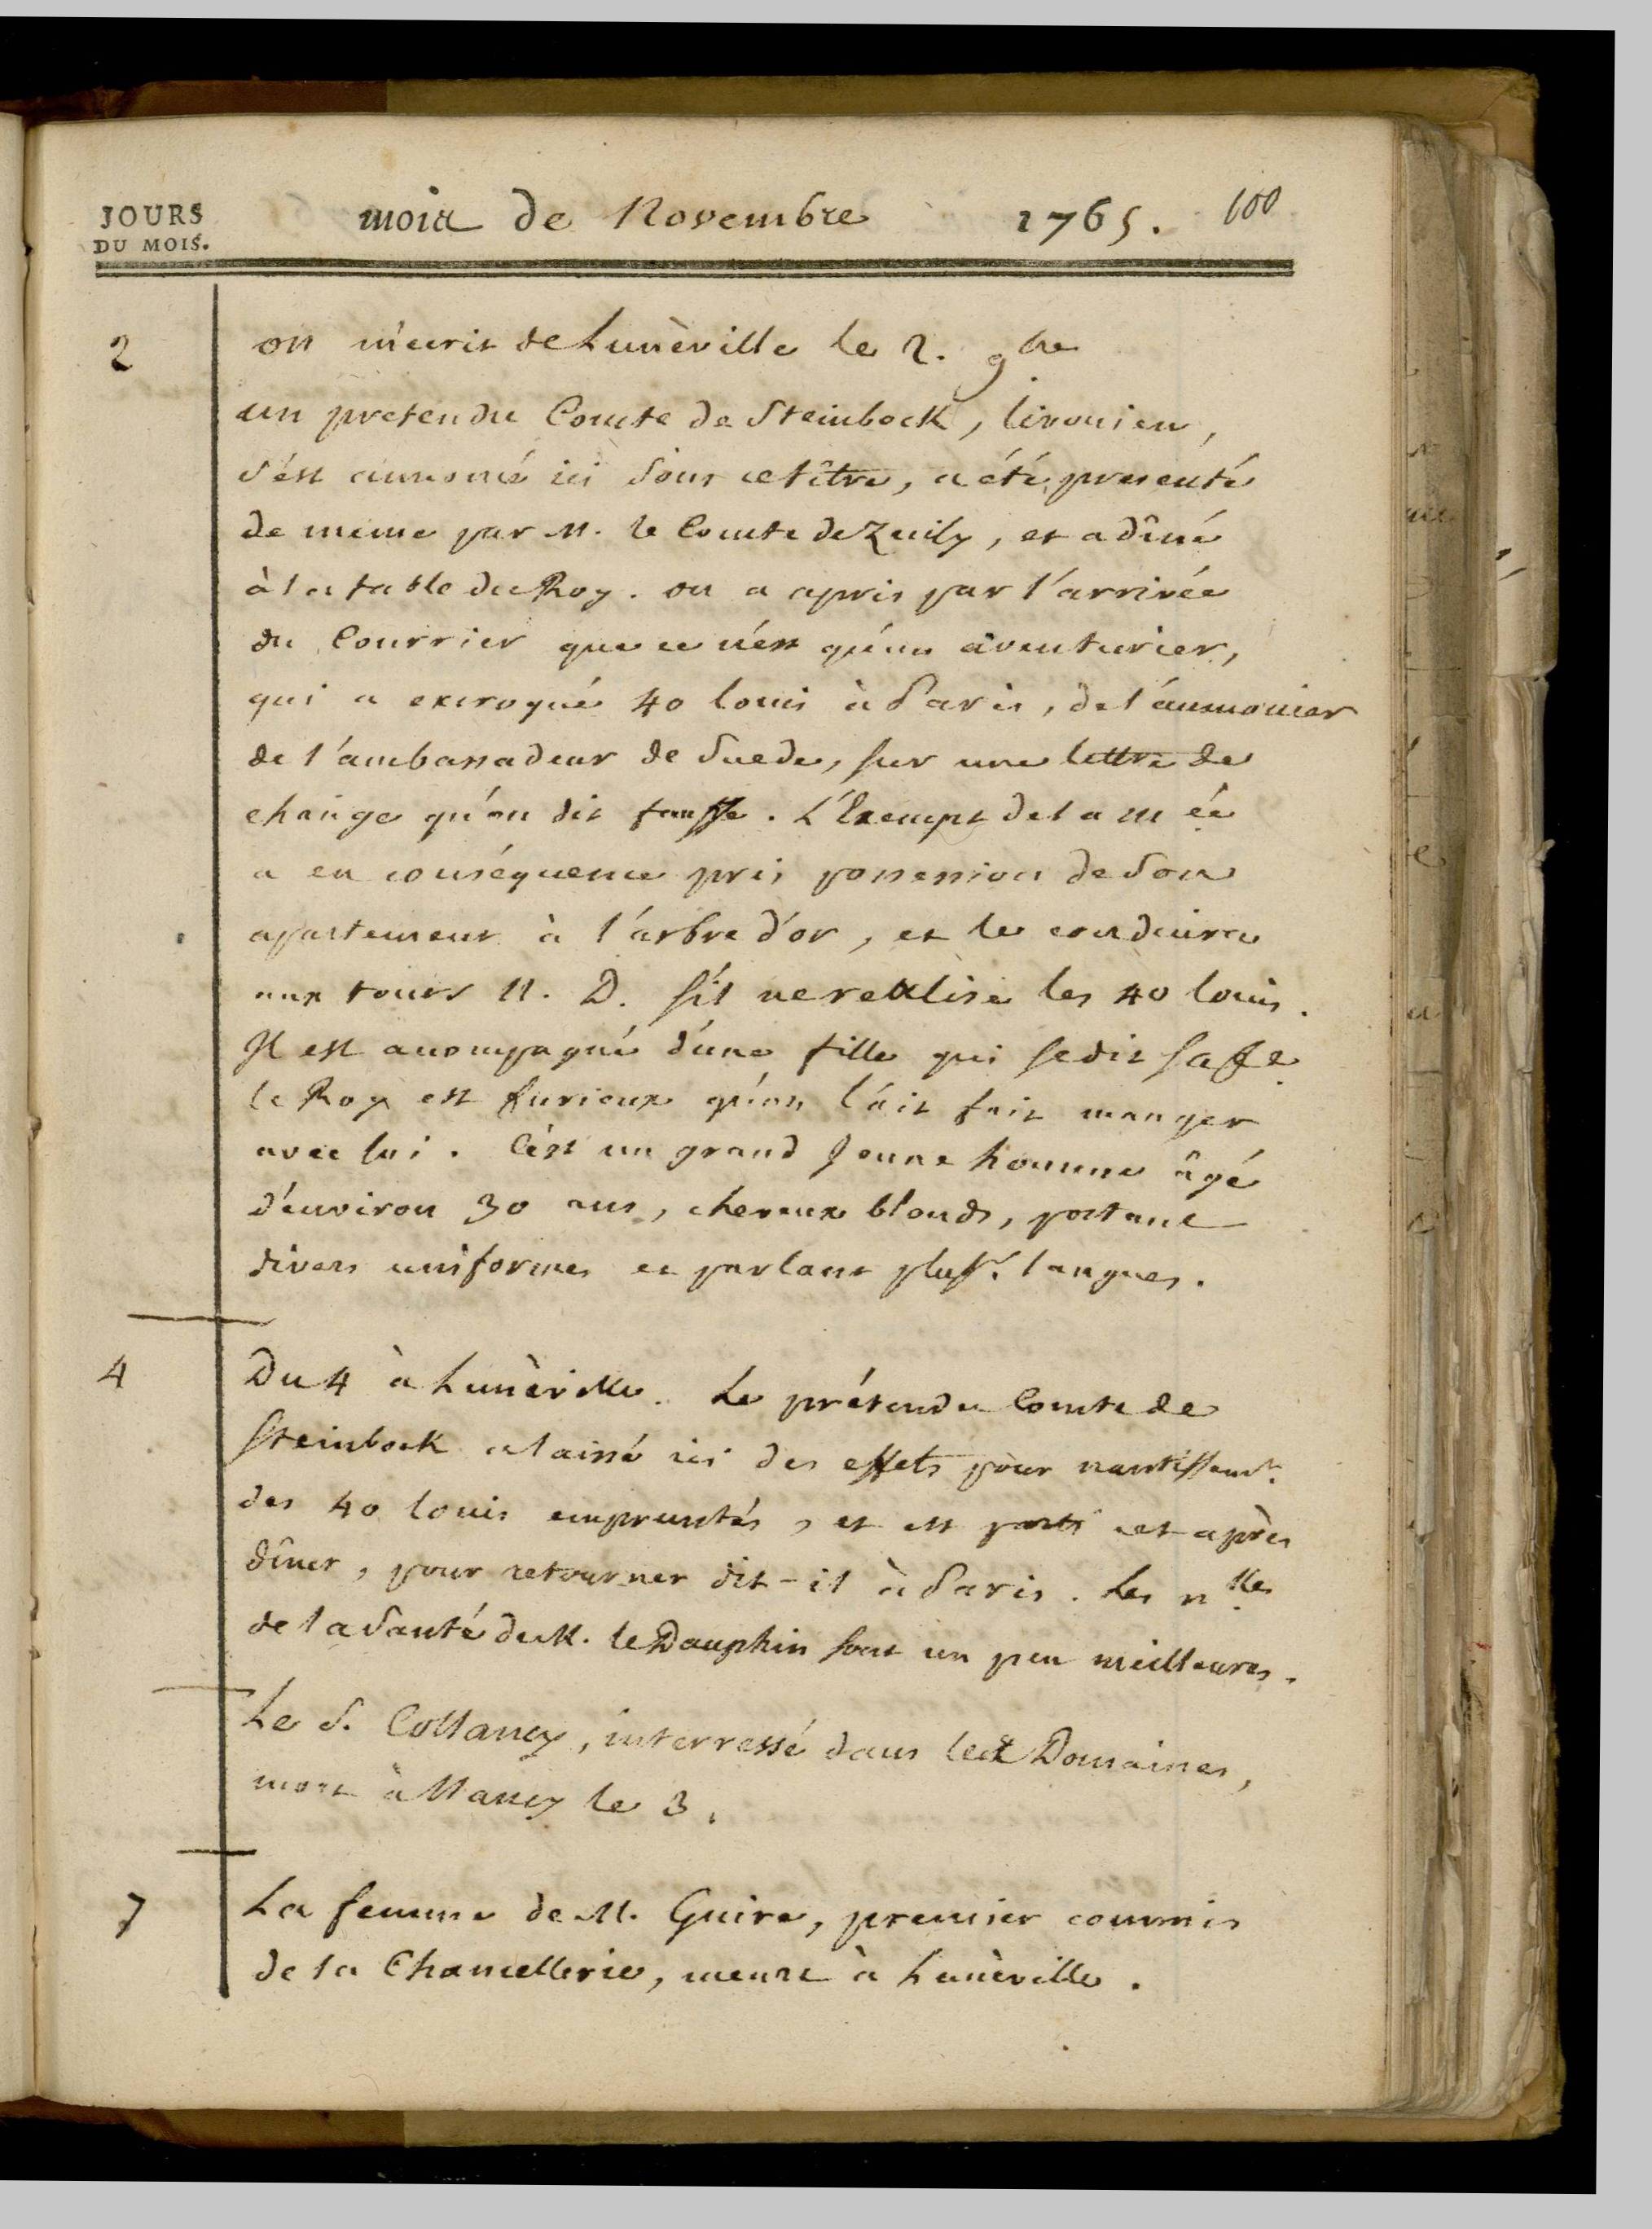 JOURS
DU MOIS.
mois de Novembre 1765. 100
2
on m'ecrit de Lunéville le 2. 9bre
un pretendu Comte de Steinbock, livonien,
s'est annoncé ici sous ce tître, a été presenté
de meme par M. le Comte de Zuily, et a dîné
à la table du Roy. on a apris par l'arrivée
du Courrier que ce n'est qu'un aventurier,
qui a excroqué 40 louis à Paris, de l'aumonier
de l'ambassadeur de Suede, sur une lettre de
change qu'on dit fausse. L'Exempt de la Mée
a en conséquence pris possession de son
apartement à l'arbre d'or, et le conduira
aux tours N. D. s'il ne réalise les 40 louis.
Il est acompagné d'une fille qui se dit sa fe.
le Roy est furieux qu'on l'ait fait manger
avec lui. C'est un grand Jeune homme âgé
d'environ 30 ans, cheveux blonds, portant
divers uniformes et parlant plusrs langues.
4
Du 4 à Lunéville. Le prétendu Comte de
Steinbock a laissé ici des effets pour nantissemt.
des 40 louis empruntés, et est parti cet après
dîner, pour retourner dit-il à Paris. Les nlles
de la Santé de M. le Dauphin sont un peu meilleures.
Le S. Collancy, interressé dans les Domaines,
mort à Nancy le 3.
7
La femme de M. Guire, premier commis
de la Chancellerie, meurt à Lunéville.